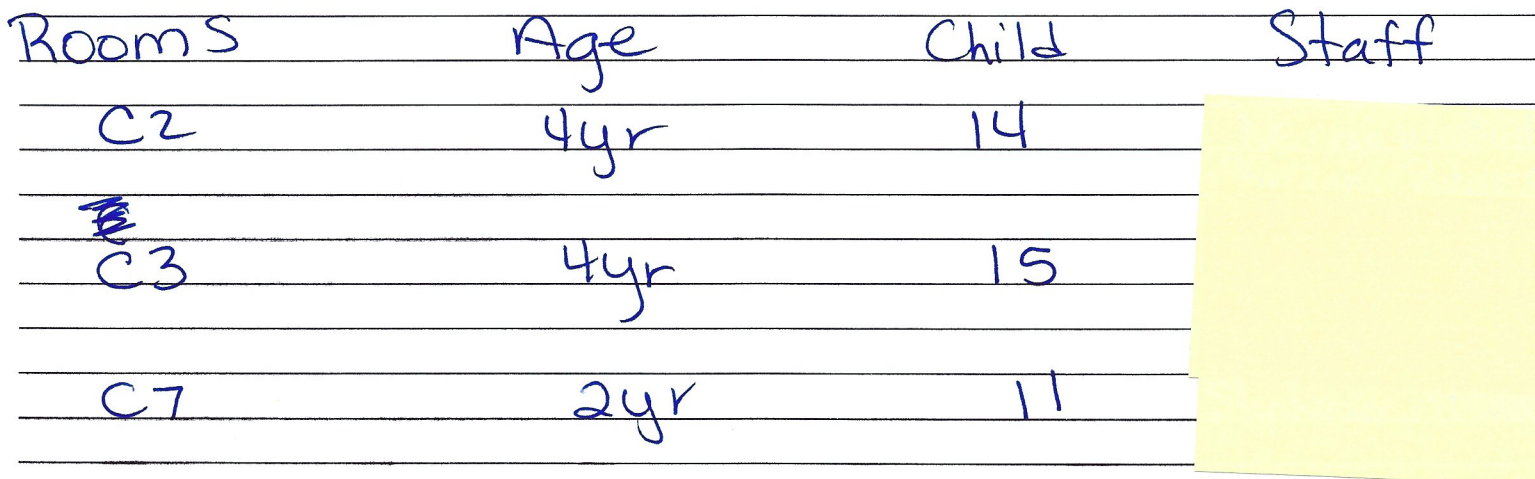 Rooms Age Child Staff
C2 4yr 14
C3 4yr 15
C7 2yr 11